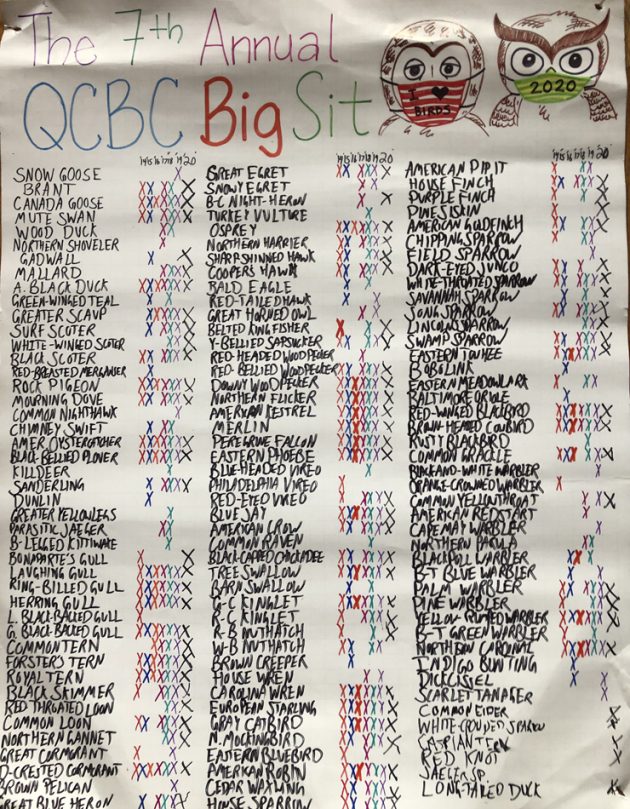 The 7th Annual
QCBC Big Sit
I ♥ BIRDS
2020
'14 '15 '16 '17 '18 '19 '20
SNOW GOOSE
BRANT
CANADA GOOSE
MUTE SWAN
WOOD DUCK
NORTHERN SHOVELER
GADWALL
MALLARD
A. BLACK DUCK
GREEN-WINGED TEAL
GREATER SCAUP
SURF SCOTER
WHITE-WINGED SCOTER
BLACK SCOTER
RED-BREASTED MERGANSER
ROCK PIGEON
MOURNING DOVE
COMMON NIGHTHAWK
CHIMNEY SWIFT
AMER. OYSTERCATCHER
BLACK-BELLIED PLOVER
KILLDEER
SANDERLING
DUNLIN
GREATER YELLOWLEGS
PARASITIC JAEGER
B-LEGGED KITTIWAKE
BONAPARTE'S GULL
LAUGHING GULL
RING-BILLED GULL
HERRING GULL
L. BLACK-BACKED GULL
G. BLACK-BACKED GULL
COMMON TERN
FORSTER'S TERN
ROYAL TERN
BLACK SKIMMER
RED THROATED LOON
COMMON LOON
NORTHERN GANNET
GREAT CORMORANT
D-CRESTED CORMORANT
BROWN PELICAN
GREAT BLUE HERON
GREAT EGRET
SNOWY EGRET
B-C NIGHT-HERON
TURKEY VULTURE
OSPREY
NORTHERN HARRIER
SHARP-SHINNED HAWK
COOPERS HAWK
BALD EAGLE
RED-TAILED HAWK
GREAT HORNED OWL
BELTED KINGFISHER
Y-BELLIED SAPSUCKER
RED-HEADED WOODPECKER
RED-BELLIED WOODPECKER
DOWNY WOODPECKER
NORTHERN FLICKER
AMERICAN KESTREL
MERLIN
PEREGRINE FALCON
EASTERN PHOEBE
BLUE-HEADED VIREO
PHILADELPHIA VIREO
RED-EYED VIREO
BLUE JAY
AMERICAN CROW
COMMON RAVEN
BLACK-CAPPED CHICKADEE
TREE SWALLOW
BARN SWALLOW
G-C KINGLET
R-C KINGLET
R-B NUTHATCH
W-B NUTHATCH
BROWN CREEPER
HOUSE WREN
CAROLINA WREN
EUROPEAN STARLING
GRAY CATBIRD
N. MOCKINGBIRD
EASTERN BLUEBIRD
AMERICAN ROBIN
CEDAR WAXWING
HOUSE SPARROW
AMERICAN PIPIT
HOUSE FINCH
PURPLE FINCH
PINE SISKIN
AMERICAN GOLDFINCH
CHIPPING SPARROW
FIELD SPARROW
DARK-EYED JUNCO
WHITE-THROATED SPARROW
SAVANNAH SPARROW
SONG SPARROW
LINCOLN SPARROW
SWAMP SPARROW
EASTERN TOWHEE
BOBOLINK
EASTERN MEADOWLARK
BALTIMORE ORIOLE
RED-WINGED BLACKBIRD
BROWN-HEADED COWBIRD
RUSTY BLACKBIRD
COMMON GRACKLE
BLACK AND-WHITE WARBLER
ORANGE-CROWNED WARBLER
COMMON YELLOWTHROAT
AMERICAN REDSTART
CAPE MAY WARBLER
NORTHERN PARULA
BLACKPOLL WARBLER
B-T BLUE WARBLER
PALM WARBLER
PINE WARBLER
YELLOW-RUMPED WARBLER
B-T GREEN WARBLER
NORTHERN CARDINAL
INDIGO BUNTING
DICKCISSEL
SCARLET TANAGER
COMMON EIDER
WHITE-CROWNED SPARROW
CASPIAN TERN
RED KNOT
JAEGER SP.
LONG-TAILED DUCK